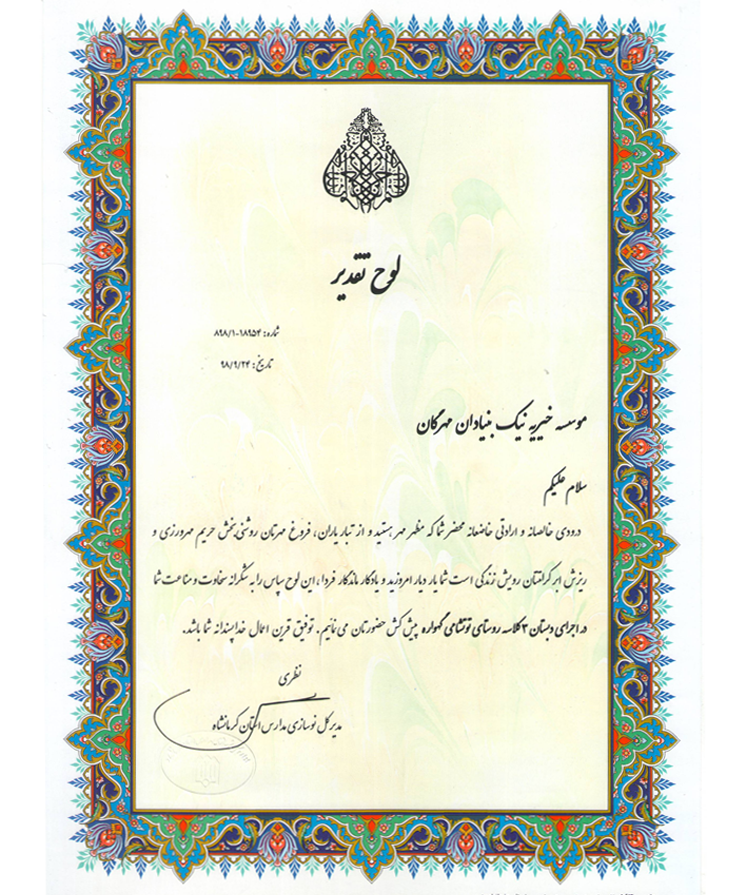 لوح تقدیر
شماره: ۸۹۸/۱-۱۸۹۵۴
تاریخ: ۹۸/۹/۲۴
موسسه خیریه نیک بنیادان مهرگان
سلام علیکم
درودی خالصانه و ارادتی خاضعانه محضر شما که مظهر مهر هستید و از تبار یاران، فروغ مهرتان روشنی بخش حریم مهرورزی و
ریزش ابر کرامتتان رویش زندگی است شما یار دیار امروزید و یادگار ماندگار فردا، این لوح سپاس را به شکرانه سخاوت و مناعت شما
در اجرای دبستان ۳ کلاسه روستای توتشامی گهواره پیش کش حضورتان می نمایم. توفیق قرین اعمال خداپسندانه شما باشد.
نظری
مدیر کل نوسازی مدارس استان کرمانشاه